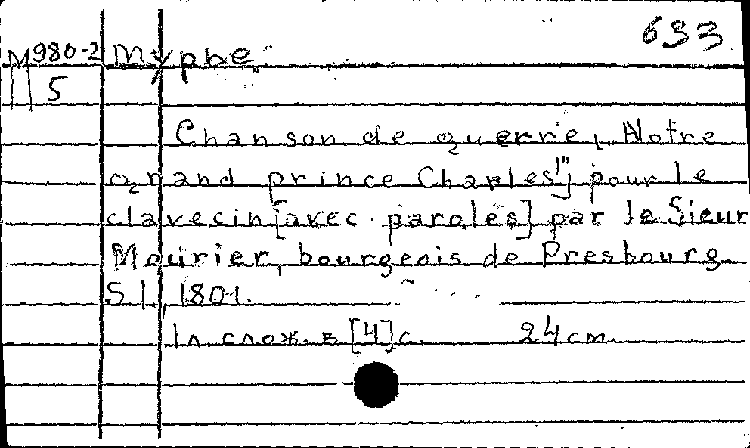 633
M 980-2 Myphe
5
Chanson de guerre, Notre
grand prince Charles!"] pour le
clavecin [avec paroles] par le Sieur
Mourier, bourgeois de Presbourg
S.l., 1801.
1 л слож. в [4] с. 24 cm.